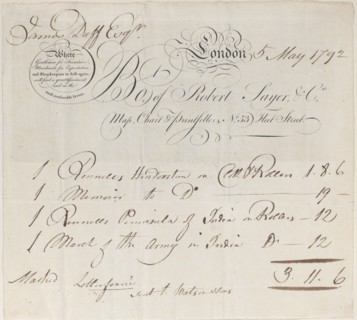 James Duff Esqr.
London 5 May 1792
Where
Gentlemen for
Merchants for Exportation
and Shopkeepers to Sell again,
Bot. of Robert Sayer, & Co.
Map, Chart & Printsellers, No. 53 Fleet Street.
1 Rennells Hindoostan on & Rollers 1..8..6
1 Memoir to Do 19 -
1 Rennells Peninsula of India on Rollers - 12
1 March of the Army in India Do - 12
3.11.6